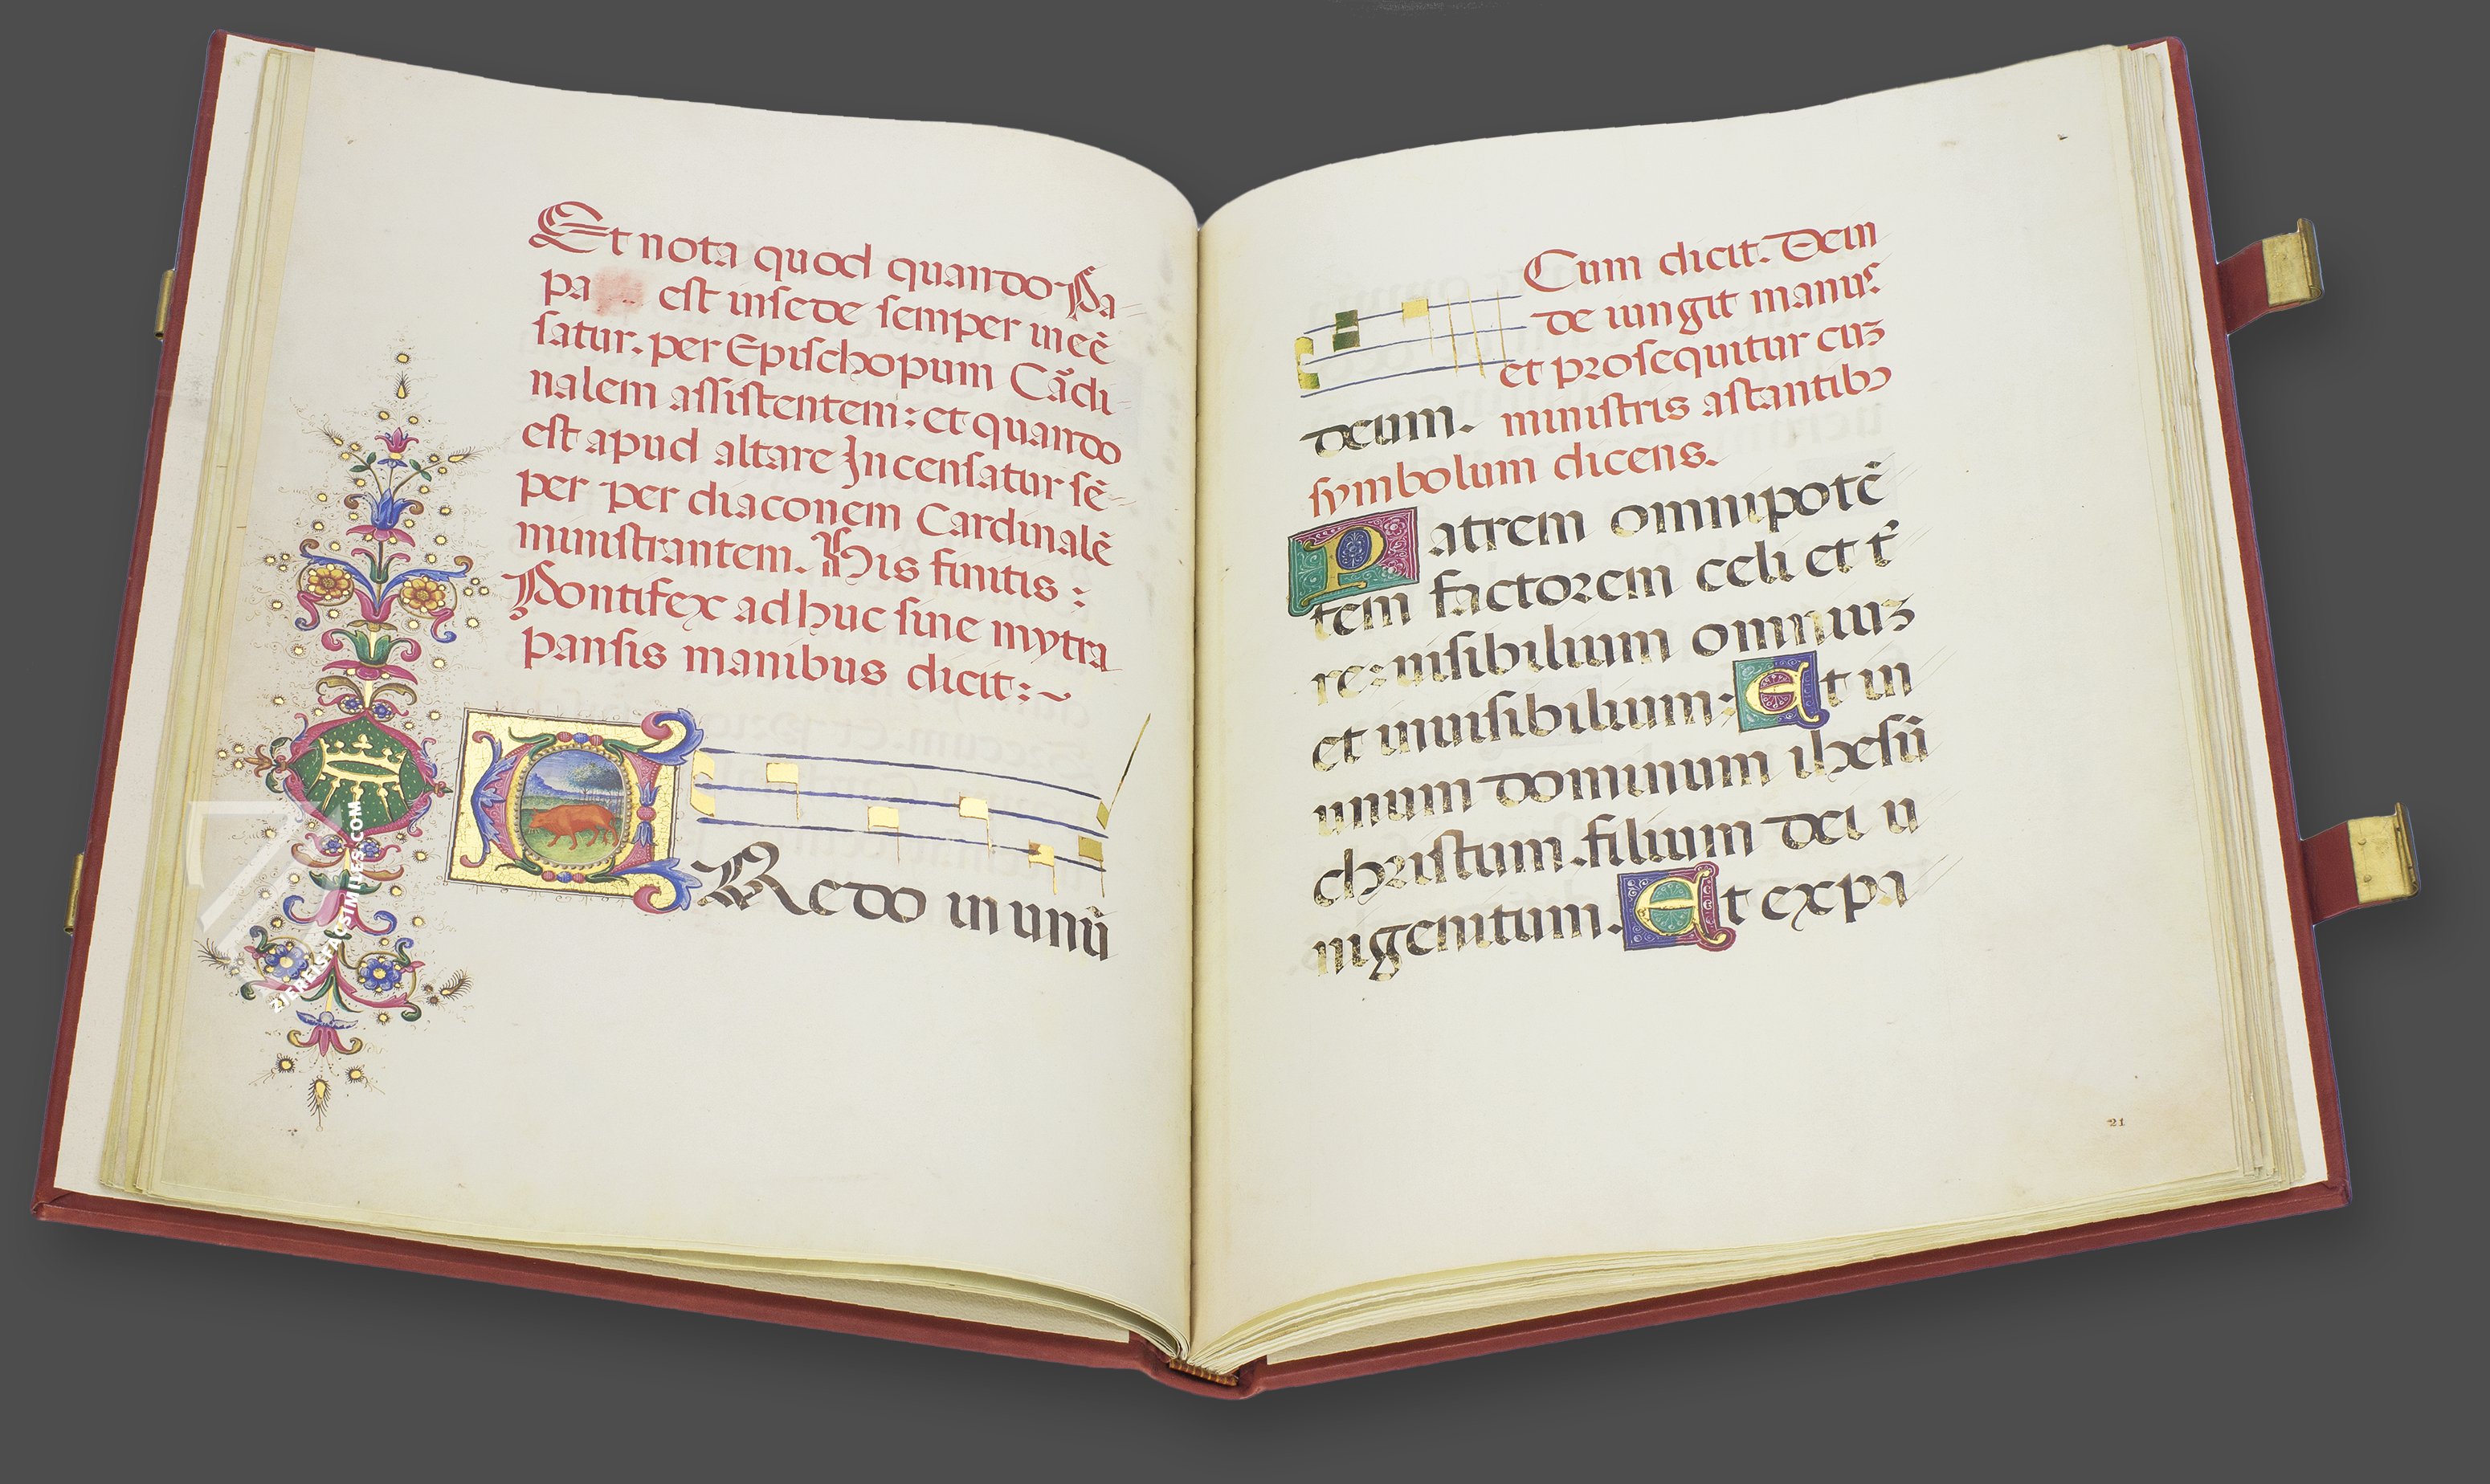 Et nota quod quando Pa-
pa est in sede semper incē-
satur. per Epischopum Cādi-
nalem assistentem: et quando
est apud altare Incensatur sē-
per per diaconem Cardinalē
ministrantem. His finitis:
Pontifex adhuc sine mytra
pansis manibus dicit:~
CRedo in unū
Cum dicit. Dein
de iungit manus
et prosequitur cuz
deum. ministris astantibꝫ
symbolum dicens.
Patrem omnipotē
tem factorem celi et tr̄
re: uisibilium omniuz
et inuisibilium: Et in
unum dominum ihesū
christum. filium dei u
nigenitum. Et expa
21
ZIEREISFACSIMILES.COM